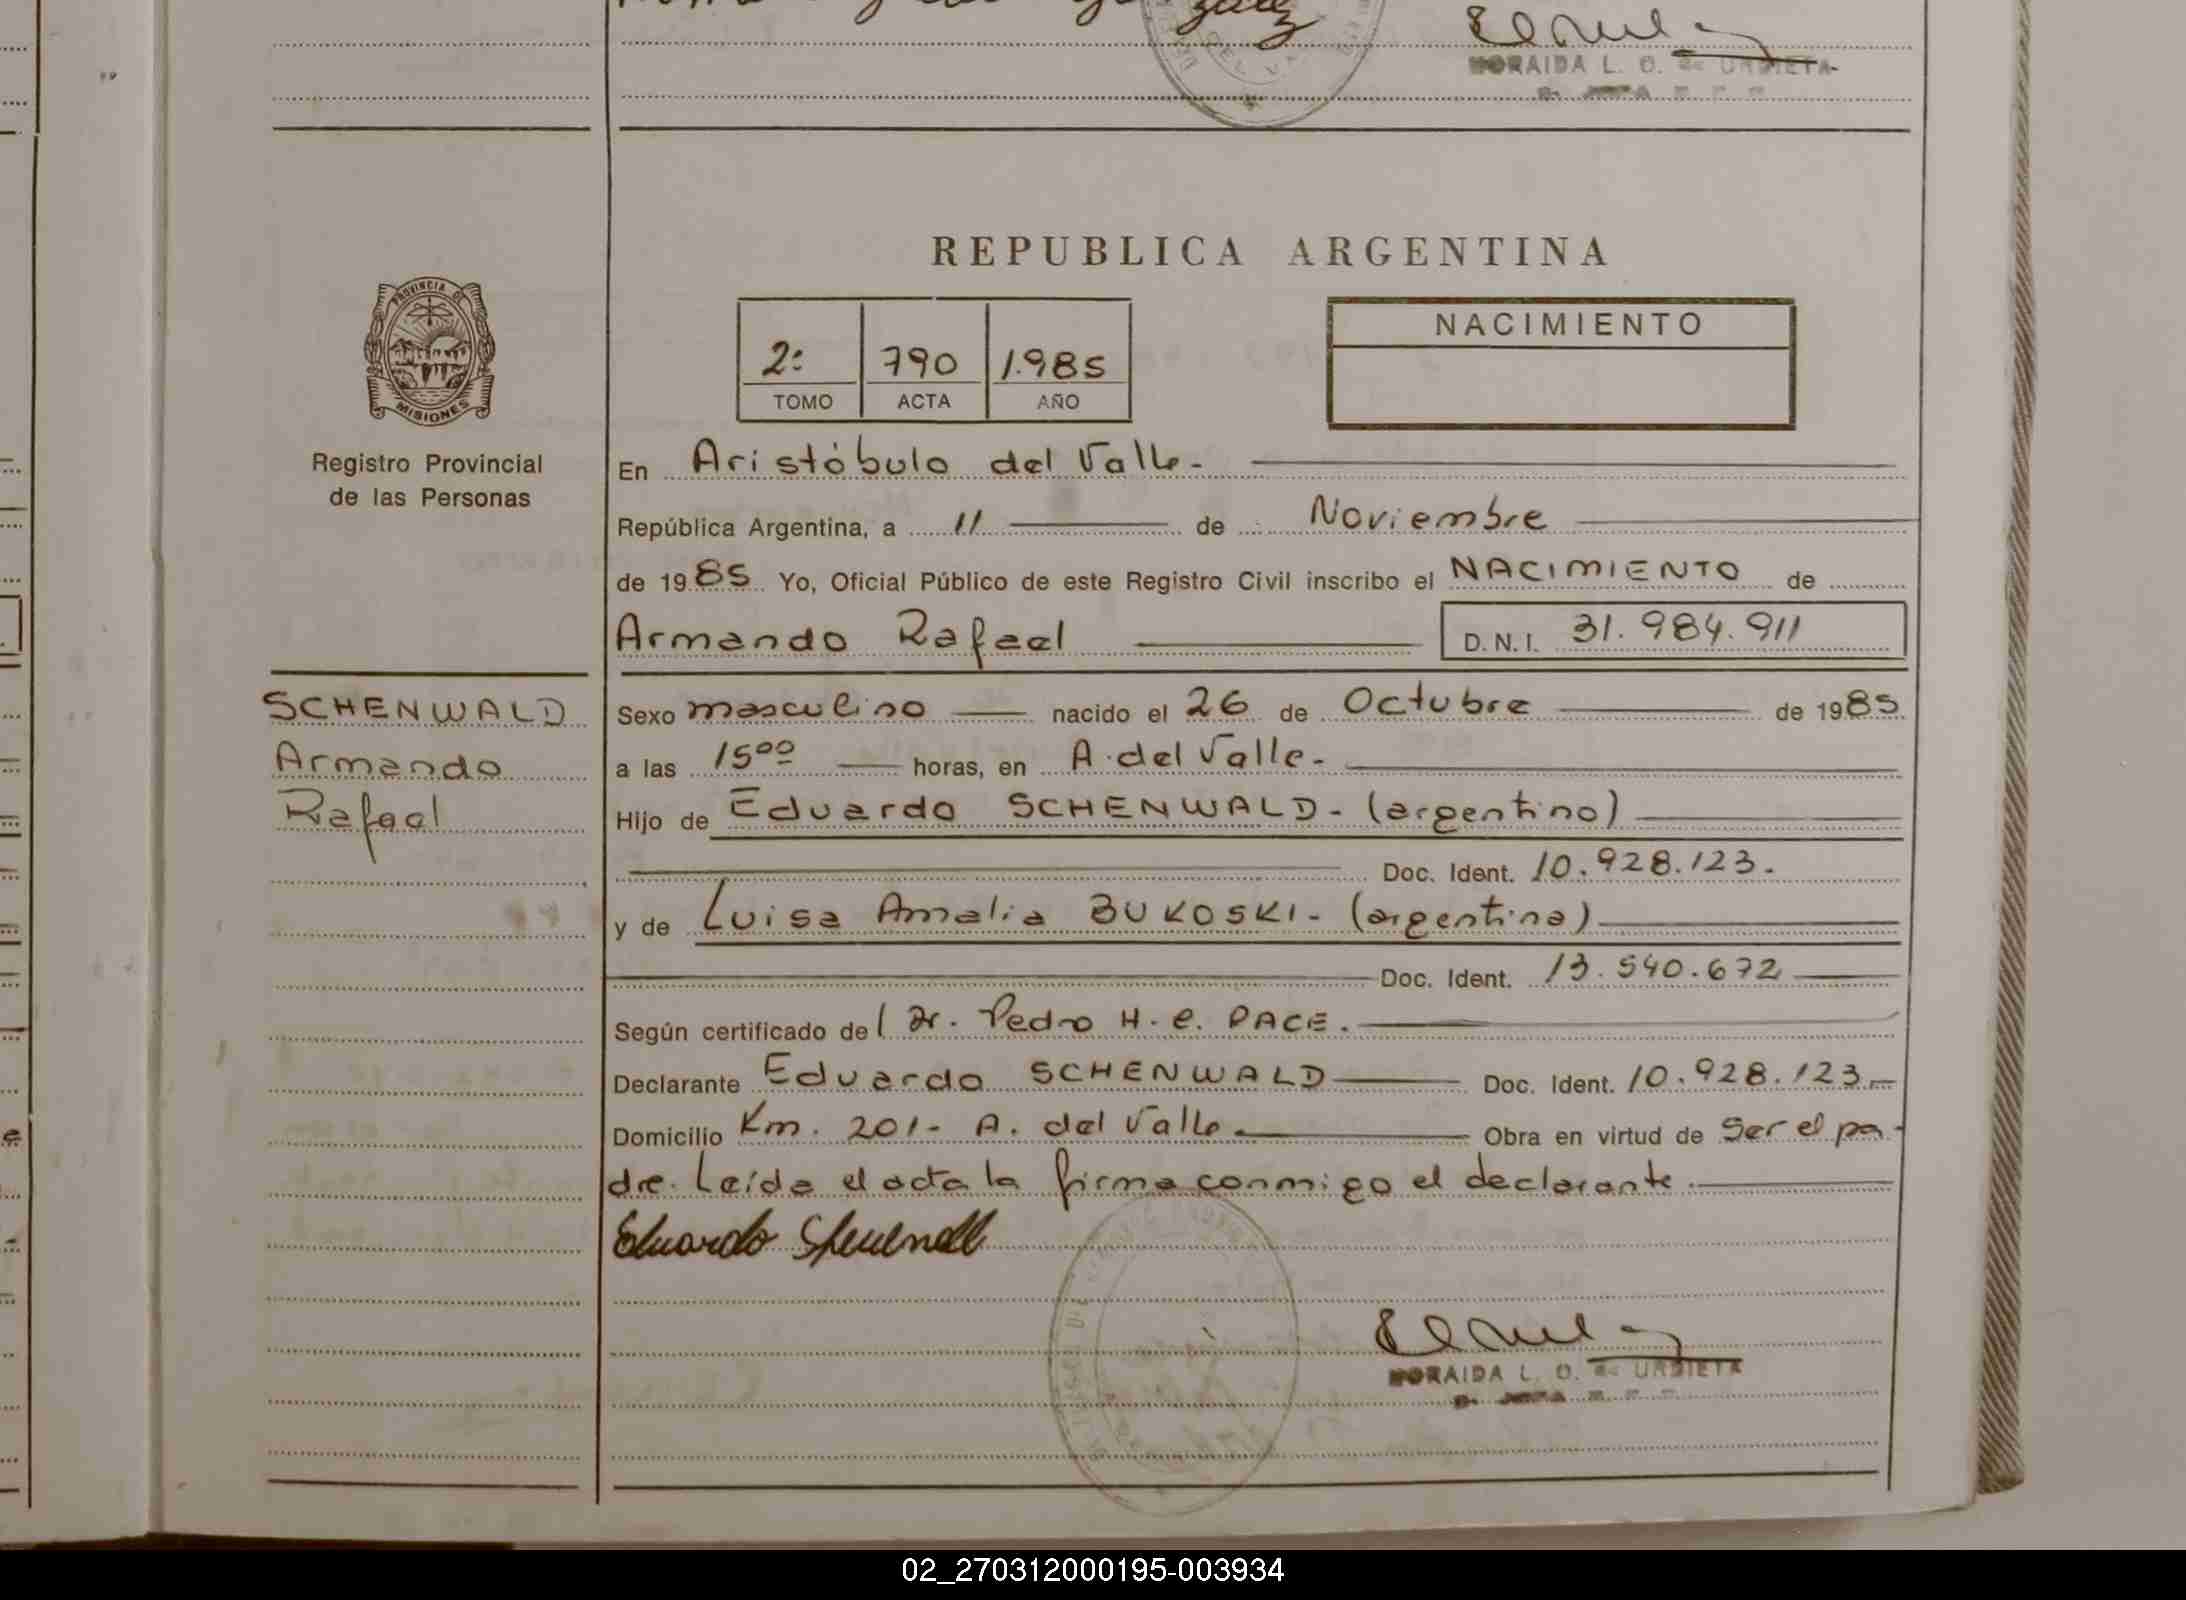 MORAIDA L. O. de URDIETA
REPUBLICA ARGENTINA
PROVINCIA DE
MISIONES
Registro Provincial
de las Personas
2º 790 1.985
TOMO ACTA AÑO
NACIMIENTO
En Aristóbulo del Valle.-
República Argentina, a 11 de Noviembre
de 1985 Yo, Oficial Público de este Registro Civil inscribo el NACIMIENTO de
Armando Rafael D.N.I. 31.984.911
SCHENWALD
Armando
Rafael
Sexo masculino nacido el 26 de Octubre de 1985
a las 15⁰⁰ horas, en A. del Valle.-
Hijo de Eduardo SCHENWALD- (argentino)
Doc. Ident. 10.928.123.
y de Luisa Amalia BUKOSKI- (argentina)
Doc. Ident. 13.540.672
Según certificado del Dr. Pedro H. C. PACE.
Declarante Eduardo SCHENWALD Doc. Ident. 10.928.123.-
Domicilio Km. 201- A. del Valle. Obra en virtud de Ser el pa-
dre. Leída el acta la firma conmigo el declarante.
Eduardo
MORAIDA L. O. de URDIETA
02_270312000195-003934